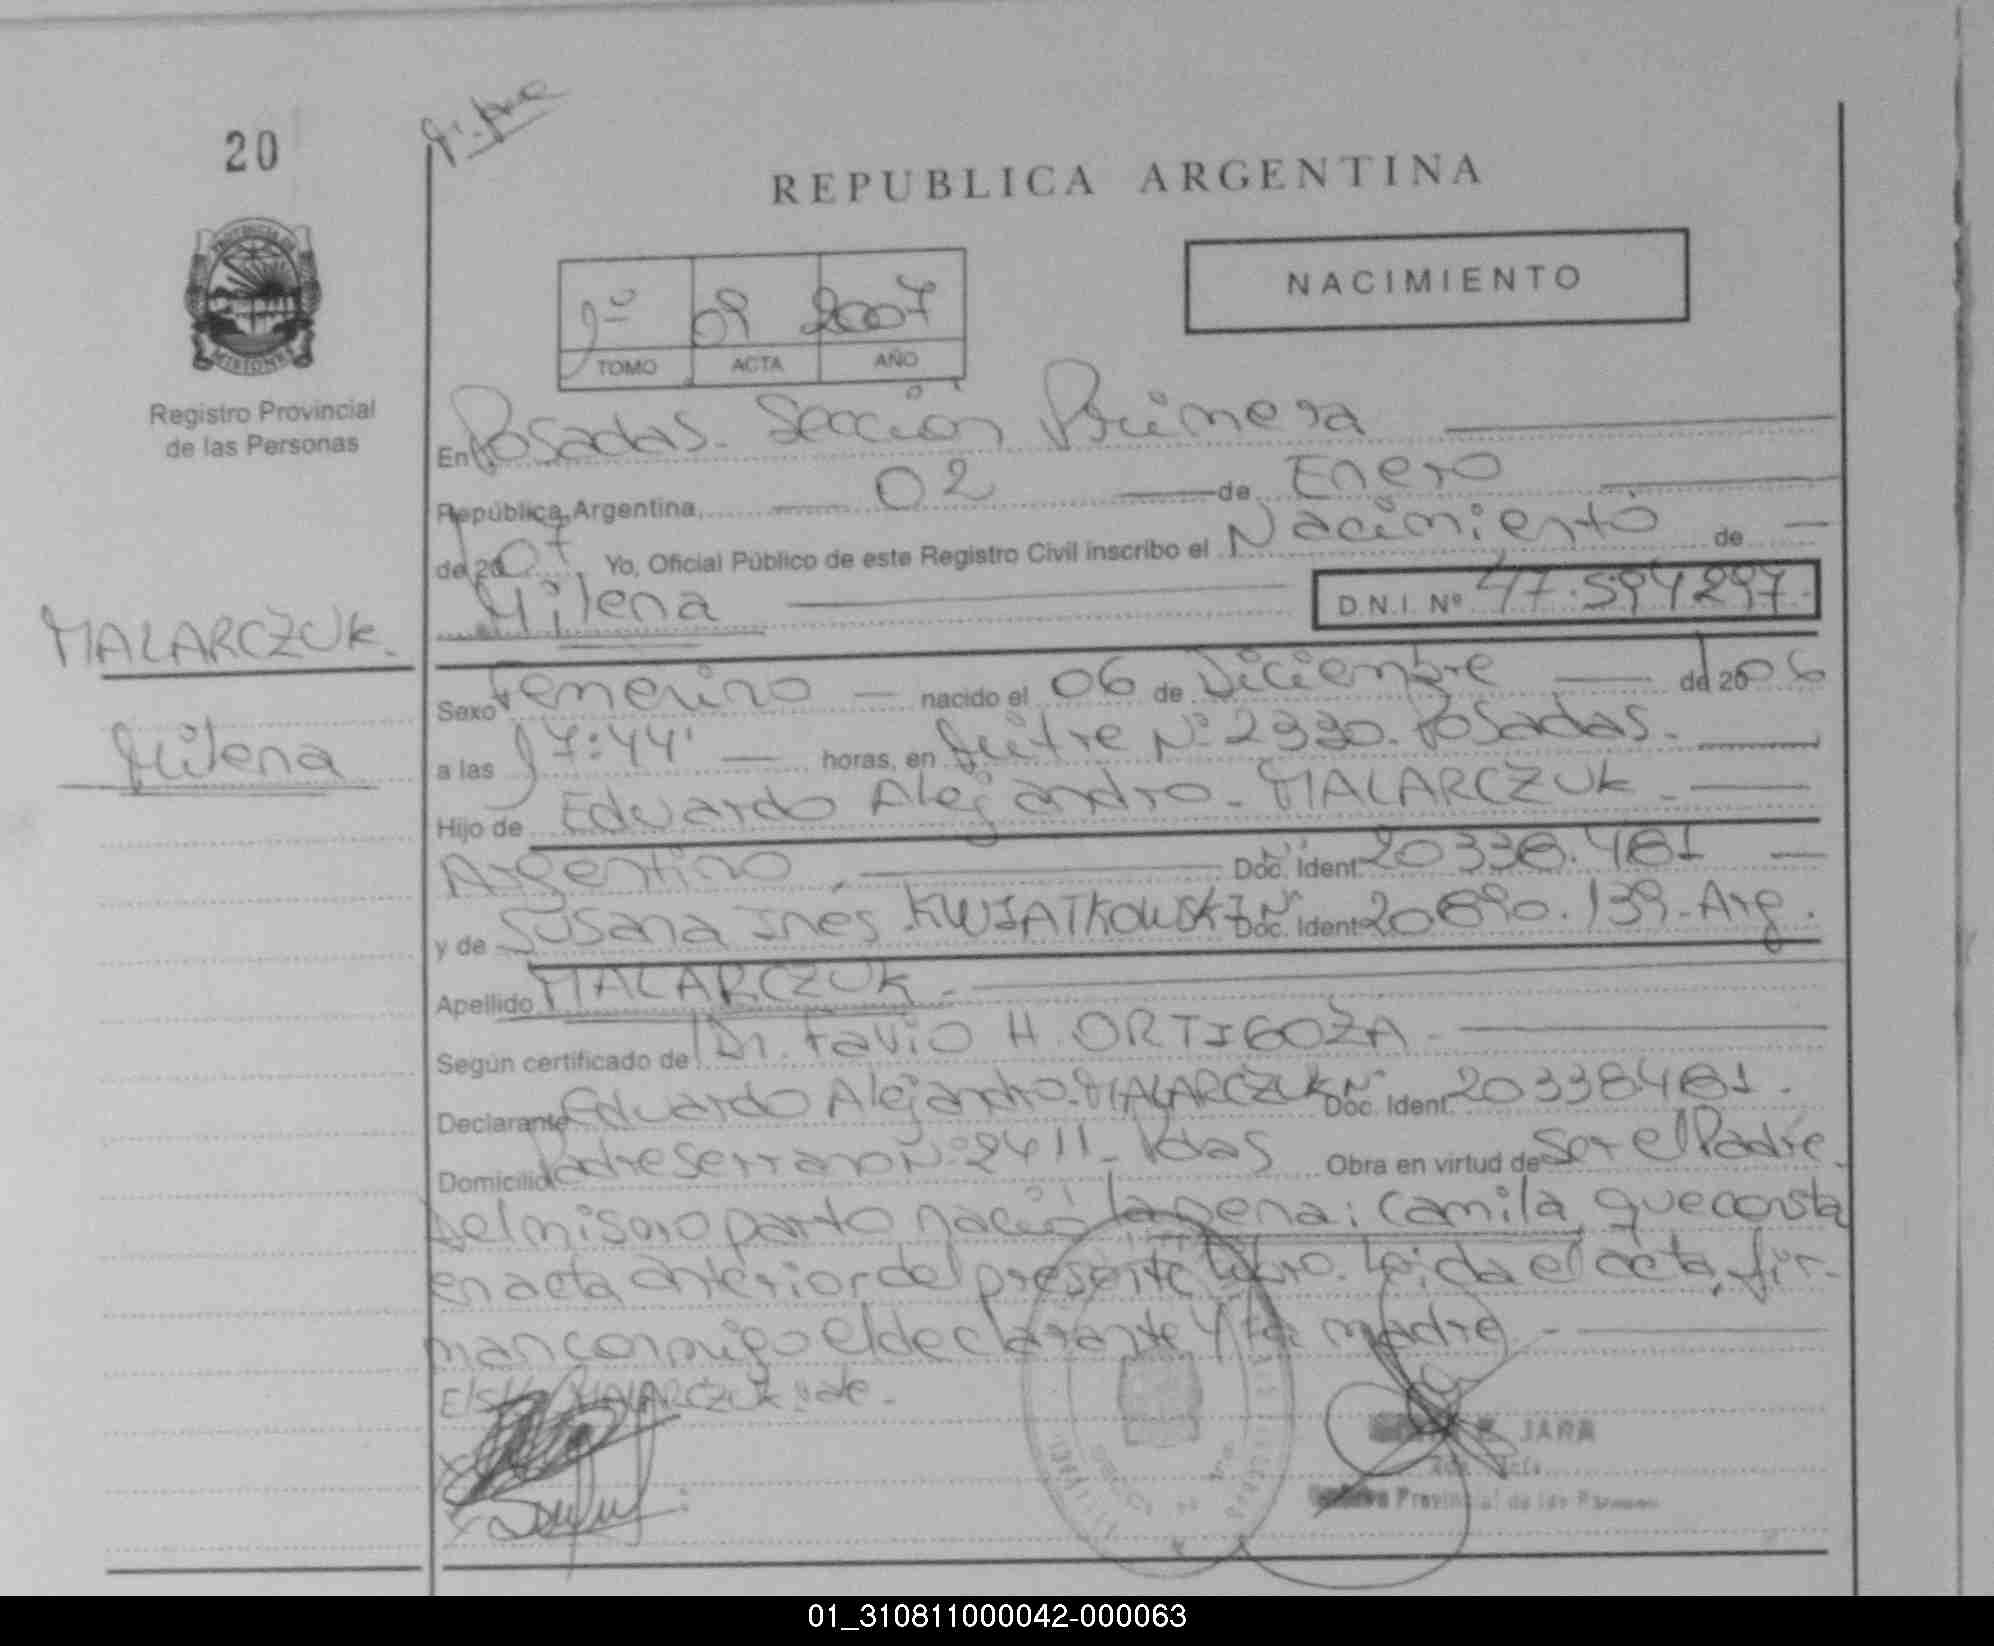 20
REPUBLICA ARGENTINA
NACIMIENTO
1º 09 2007
TOMO ACTA AÑO
PROVINCIA DE
MISIONES
Registro Provincial
de las Personas
En Posadas. Sección Primera
República Argentina, 02 de Enero
de 2007 Yo, Oficial Público de este Registro Civil inscribo el Nacimiento de
Milena D.N.I. Nº 47.594297.
MALARCZUK.
Milena
Sexo Femenino nacido el 06 de Diciembre de 2006
a las 17:44' horas, en Mitre Nº 2330. Posadas.
Hijo de Eduardo Alejandro. MALARCZUK.
Argentino, Nº Doc. Ident. 20338.481
y de Susana Inés. KWIATKOWSKI Nº Doc. Ident. 20.890.139. Arg.
Apellido MALARCZUK.
Según certificado de Dr. Favio H. ORTIGOZA.
Declarante Eduardo Alejandro. MALARCZUK Nº Doc. Ident. 20338481.
Domicilio Padre Serrano Nº 2411. Pdas Obra en virtud de Ser el Padre.
del mismo parto nació la nena: Camila, que consta
en acta anterior del presente libro. Leída el acta, fir-
man conmigo el declarante y la madre.
E/S/L MALARCZUK vale.
JARA
Provincial de las Personas
01_310811000042-000063